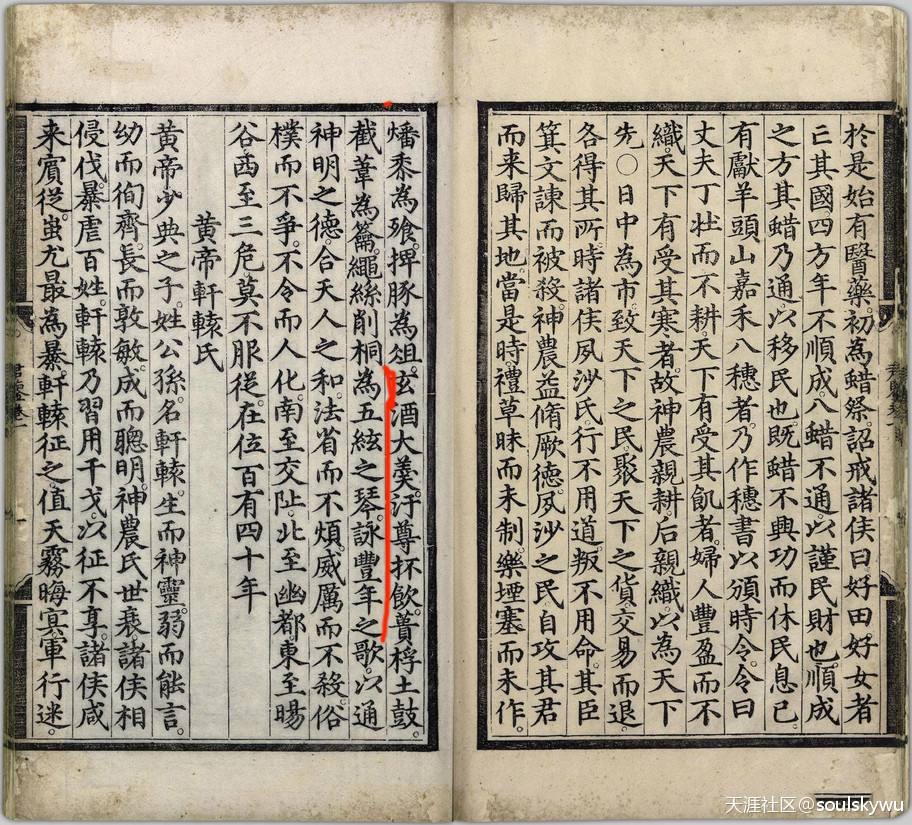 於是始有醫藥。初為蜡祭。詔戒諸侯曰好田好女者
亡其國四方年不順成。八蜡不通。以謹民財也。順成
之方其蜡乃通。以移民也。既蜡不興功而休民息已
有獻羊頭山嘉禾八穗者。乃作穗書以頒時令。令曰
丈夫丁壯而不耕。天下有受其飢者。婦人豐盈而不
織。天下有受其寒者。故神農親耕。后親織。以為天下
先〇日中為市致天下之民。聚天下之貨。交易而退。
各得其所。時諸侯夙沙氏。行不用道。叛不用命。其臣
箕文諫而被殺。神農益脩厥德。夙沙之民。自攻其君
而来歸其地。當是時禮草昧而未制。樂堙塞而未作。
燔黍為飱。捭豚為俎。玄酒大羹。汙尊杯飲。蕢桴土鼓
截葦為籥。繩絲削桐為五絃之琴。詠豐年之歌。以通
神明之德。合天人之和。法省而不煩。威厲而不殺。俗
樸而不爭。不令而人化。南至交阯。北至幽都。東至暘
谷。西至三危。莫不服從。在位百有四十年
黄帝軒轅氏
黄帝少典之子。姓公孫。名軒轅。生而神靈。弱而能言。
幼而徇齊。長而敦敏。成而聰明。神農氏世衰。諸侯相
侵伐。暴虐百姓。軒轅乃習用干戈。以征不享。諸侯咸
来賓從。蚩尤最為暴。軒轅征之。值天霧晦冥。軍行迷。
天涯社区@soulskywu